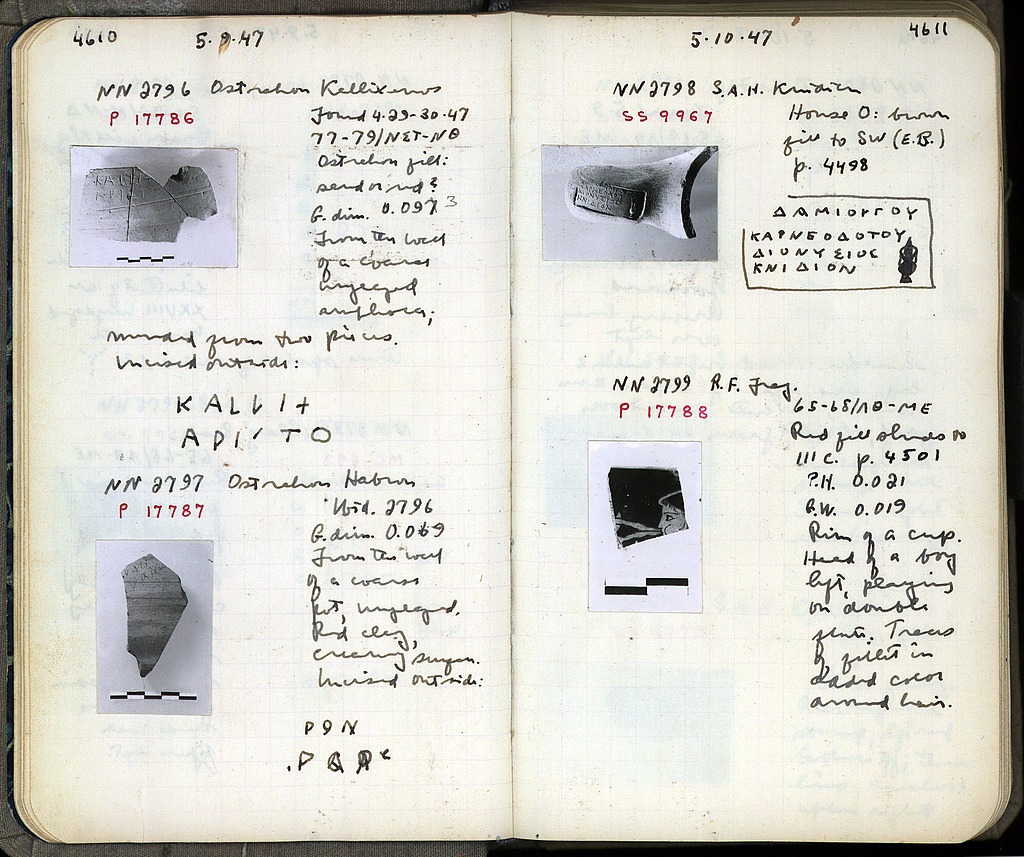 4610
5.9.47
NN 2796 Ostrakon Kallixenos
P 17786
Found 4.29-30.47
77-79/ΝΣΤ-ΝΘ
Ostrakon fill:
second
G. dim. 0.093
From the wall
of a coarse
unglazed
amphora;
mended from two pieces.
Incised outside:
ΚΑLLΙ+
ΑΡΙ ΤΟ
NN 2797 Ostrakon Habron
P 17787
Ibid. 2796
G. dim. 0.069
From the wall
of a coarse
pot, unglazed.
Red clay,
creamy surface.
Incised outside:
5.10.47
4611
NN 2798 S.A.H. Knidian
SS 9967
House O: brown
fill to SW (E.B.)
p. 4498
ΔΑΜΙΟΡΓΟΥ
ΚΑΡΝΕΟΔΟΤΟΥ
ΔΙΟΝΥΣΙΟΣ
ΚΝΙΔΙΟΝ
NN 2799 R.F. Frag.
P 17788
65-68/ΛΘ-ΜΕ
Red fill sherds to
III c. p. 4501
P.H. 0.021
P.W. 0.019
Rim of a cup.
Head of a boy
left, playing
on double
flute. Traces
of fillet in
added color
around hair.